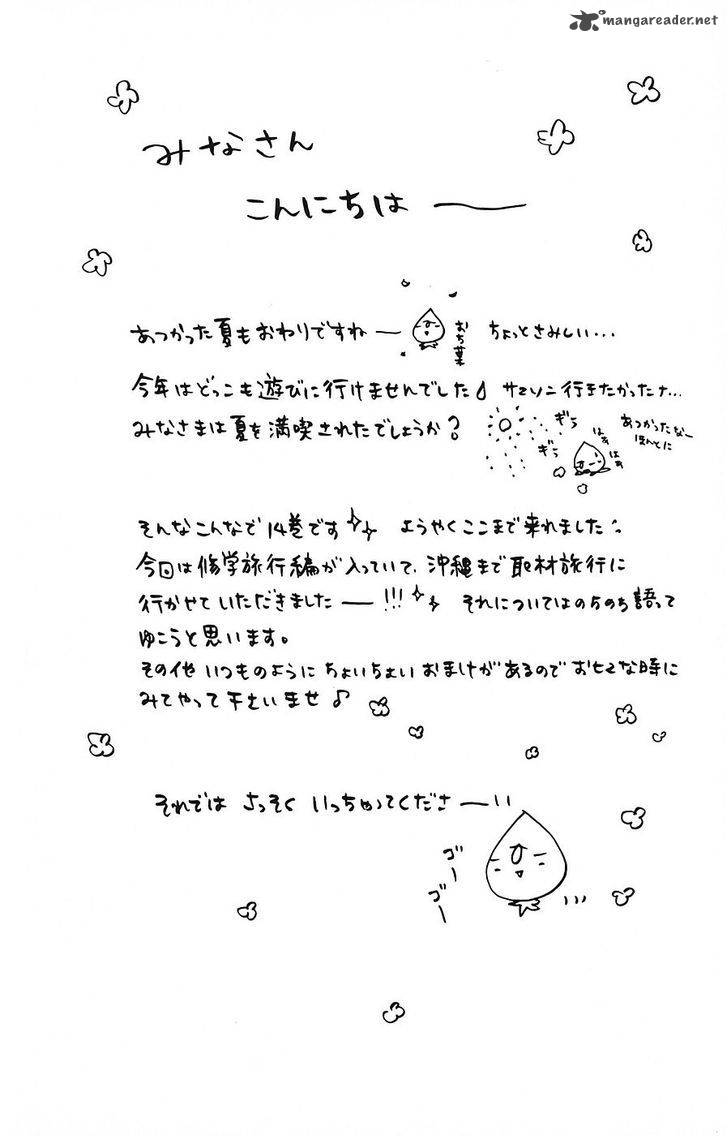 mangareader.net
みなさん
こんにちは ー
あつかった夏もおわりですねー
おち葉
ちょっとさみしい...
今年はどっこも遊びに行けませんでした サマソニ行きたかったナ...
みなさまは夏を満喫されたでしょうか?
ぎら
ぎら
はぁ
はぁ
あつかったなー
ほんとに
そんなこんなで14巻です ようやくここまで来れました
今回は修学旅行編が入っていて、沖縄まで取材旅行に
行かせていただきましたー!!! それについてはのちのち語って
ゆこうと思います。
その他いつものようにちょいちょいおまけがあるのでおヒマな時に
みてやって下さいませ♪
それでは さっそく いっちゃってくださーい
ゴー
ゴー